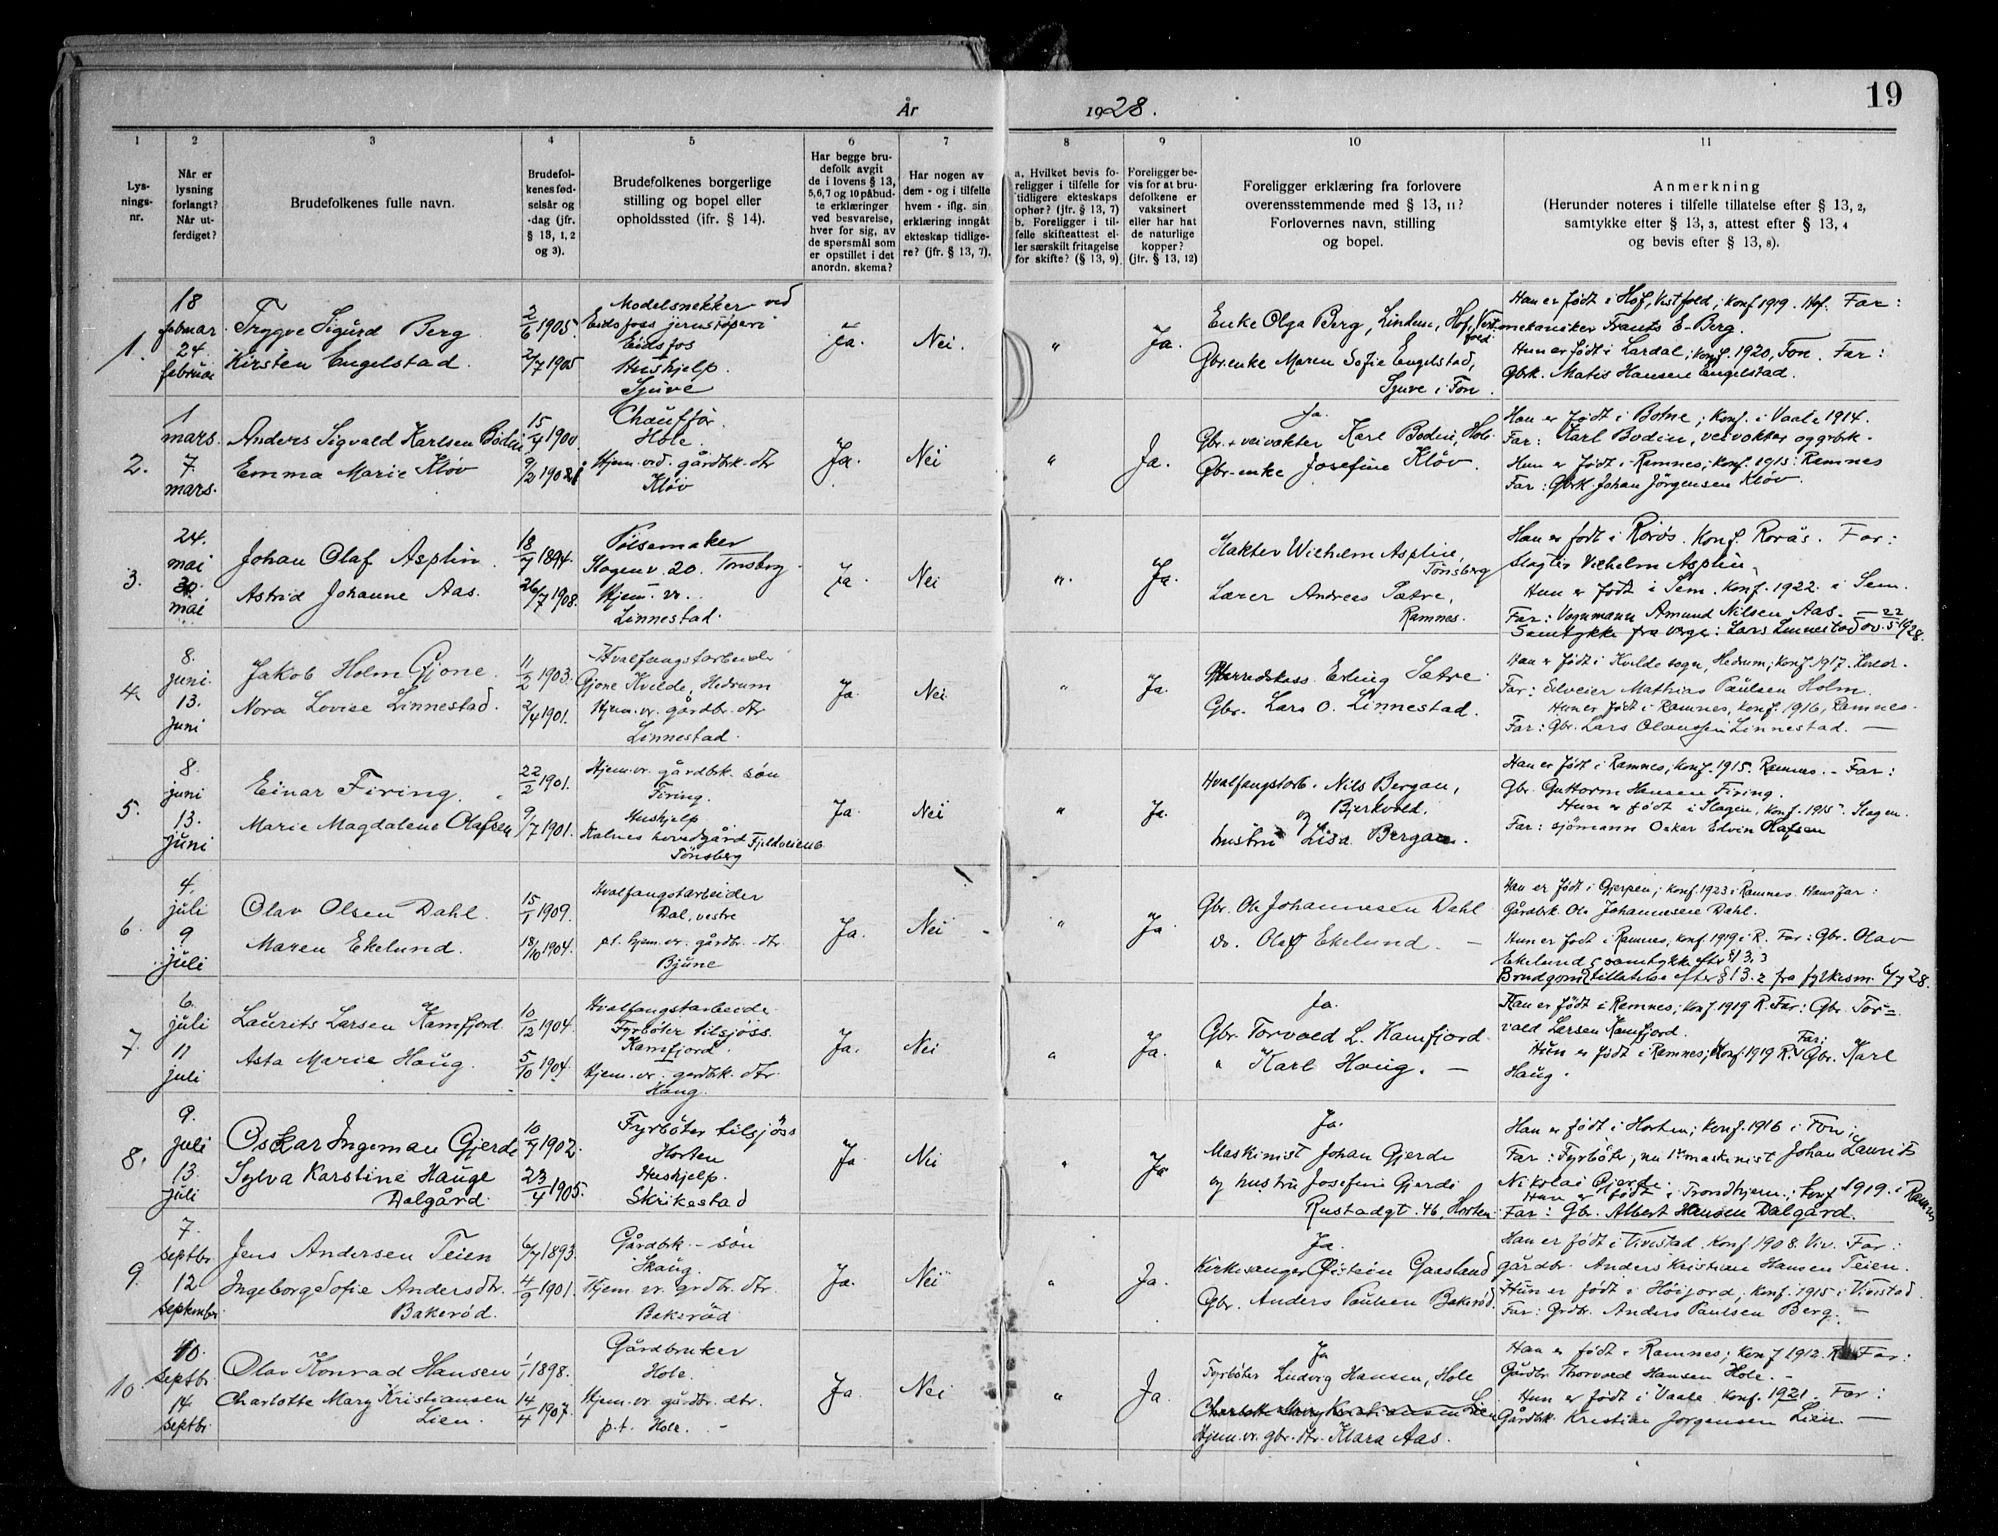 19
År 1928.
1
Lys-
nings-
nr.
2
Når er
lysning
forlangt?
Når ut-
ferdiget?
3
Brudefolkenes fulle navn.
4
Brudefol-
kenes fød-
selsår og
-dag (jfr.
§ 13, 1, 2
og 3).
5
Brudefolkenes borgerlige
stilling og bopel eller
opholdssted (ifr. § 14).
6
Har begge bru-
defolk avgit
de i lovens § 13,
5,6,7 og 10 påbud-
te erklæringer
ved besvarelse,
hver for sig, av
de spørsmål som
er opstillet i det
anordn. skema?
7
Har nogen av
dem - og i tilfelle
hvem - iflg. sin
erklæring inngåt
ekteskap tidlige-
re? (jfr. § 13, 7).
8
a. Hvilket bevis fo-
religger i tilfelle for
tidligere ekteskaps
ophør? (jfr. § 13, 7)
b. Foreligger i til-
felle skifteattest el-
ler særskilt fritagelse
for skifte? (§ 13, 9).
9
Foreligger be-
vis for at bru-
defolkene er
vaksinert
eller har hat
de naturlige
kopper?
(jfr. § 13, 12)
10
Foreligger erklæring fra forlovere
overensstemmende med § 13, 11?
Forlovernes navn, stilling
og bopel.
11
Anmerkning
(Herunder noteres i tilfelle tillatelse efter § 13, 2,
samtykke efter § 13, 3, attest efter § 13, 4
og bevis efter § 13, 8).
1.
18
februar
24.
februar
Trygve Sigurd Berg
Kirsten Engelstad.
2/6 1905.
2/7 1905
Modelsnekker ved
Eidsfoss jernstøperi
Eidsfos
Hushjelp.
Sjuve
Ja.
Nei.
"
Ja.
Enke Olga Berg, Lindem, Hof, Vest-
fold.
Gbr.enke Maren Sofie Engelstad,
Sjuve i Fon
Han er født i Hof, Vestfold; konf 1919. Hof. Far:
mekaniker Frants E. Berg.
Hun er født i Lardal; konf. 1920, Fon. Far:
Gbrk. Matis Hansen Engelstad.
2.
1
mars.
7.
mars.
Anders Sigvald Karlsen Bodin
Emma Marie Kløv
15/4 1900
9/2 1902
Chauffør
Hole.
Hjem.vd. gårdbrk. dtr
Kløv
Ja.
Nei
"
Ja.
Ja.
Gbr. + veivokter Karl Bodin, Hole.
Gbr-enke Josefine Kløv.
Han er født i Botne; konf. i Vaale 1914.
Far: Karl Bodin, veivokter og grbk.
Hun er født i Ramnes; konf. 1915: Ramnes
Far: Gbrk. Johan Jörgensen Kløv.
3.
24.
mai
30.
mai
Johan Olaf Asplin.
Astrid Johanne Aas.
18/7 1894.
26/7 1908.
Pølsemaker
Slagenv. 20. Tønsberg
Hjem. vr.
Linnestad.
Ja
Nei
".
Ja.
Slakter Wilhelm Asplin,
Tønsberg
Lærer Andreas Sætre,
Ramnes.
Han er født i Rørøs. Konf. Rorås. Far:
slagter Vilhelm Asplin.
Hun er født i Sem. konf. 1922. i Sem.
Far: Vognmann Amund Nilsen Aas.
Samtykke fra verge: Lars Linnestad av 22/5 1928.
4.
8.
juni.
13.
juni
Jakob Holm Gjone.
Nora Lovise Linnestad.
11/2 1903.
2/4 1901.
Hvalfangstarbeider
Gjone Kvelde, Hedrum
Hjem.vr. gårdbr. dtr
Linnestad.
Ja
Nei
"
Ja.
Herredskass. Erling Sætre
Gbr. Lars O. Linnestad.
Han er født i Kvelde sogn, Hedrum; konf. 1917. Hedr.
Far: Edveier Mathias Paulsen Holm.
Hun er født i Ramnes, konf. 1916, Ramnes.
Far: Gbr. Lars Olaussen Linnestad. —
5.
8.
juni
13.
juni
Einar Firing.
Marie Magdalene Olafsen
22/2 1901.
9/7 1901.
Hjem.vr. gårdbrk. søn
Firing.
Hushjelp
Kalnes hovedgård Fjeldveien 6
Tønsberg
Ja.
Nei
"
Ja.
Hvalfangstarb. Nils Bergan,
Bjerkvold.
og
hustru Lisa Bergan.
Han er født i Ramnes, konf. 1915. Ramnes. - Far:
Gbr. Guttorm Hansen Firing.
Hun er født i Slagen, konf. 1915. Slagen.
Far: sjömann Oskar Edvin Olafsen
6.
4.
juli
9
juli
Olav Olsen Dahl.
Maren Ekelund.
15/1 1909.
18/10 1904.
Hvalfangstarbeider
Dal, vestre
p.t. hjem.vr. gårdbr. dtr
Bjune
Ja.
Nei
"
Ja
Gbr. Ole Johannesen Dahl
do. Olaf Ekelund. —
Han er født i Gjerpen; konf. 1923 i Ramnes. Hans far:
Gårdbrk. Ole Johannesen Dahl.
Hun er født i Ramnes, konf. 1919 i R. Far: Gbr. Olav
Ekelund, samtykke efter § 13.3
Brudgom tillatelse efter § 13.2 fra fylkesm. 6/7 28.
7.
6.
juli
11
juli
Laurits Larsen Kamfjord
Asta Marie Haug.
10/12 1904.
5/10 1904.
Hvalfangstarbeide-
Fyrbøter tilsjøss.
Kamfjord.
Hjem.vr. gardbk. dtr.
Haug.
Ja.
Nei
"
Ja.
Ja.
Gbr. Torvald L. Kamfjord
" Karl Haug. —
Han er født i Ramnes; konf 1919 R. Far: Gbr. Tor=
vald Larsen Kamfjord.
Hun er født i Ramnes; konf. 1919 R. Far: Gbr. Karl
Haug.
8.
9.
juli
13.
juli
Oskar Ingeman Gjerde
Sylva Karstine Hauge
Dalgård.
10/9 1902.
23/4 1905.
Fyrbøter tilsjöss
Horten
Hushjelp.
Skrikestad
Ja
Nei
"
Ja
Ja.
Maskinist Johan Gjerde
og hustru Josefine Gjerde
Rustadgt. 46, Horten.
Han er født i Horten; konf. 1916 i Fon;
Far: Fyrbøter, nu 1ste maskinist Johan Laurits
Nikolai Gjerde.
Hun er født i Trondhjem; konf 1919. i Ramnes
Far: Gbr. Albert Hansen Dalgård.
9.
7.
septbr
12
september
Jens Andersen Teien
Ingeborg Sofie Andersdtr.
Bakerød.
6/7 1893.
4/9 1901.
Gårdbrk. - søn
Skaug.
Hjem.vr. grdbr. dtr.
Bakerød
Ja.
Nei
"
Ja.
Ja.
Kirkesanger Øistein Gaasland
Gbr. Anders Paulsen Bakerød.
Han er født i Vivestad. konf. 1908. Viv. Far:
gårdbr. Anders Kristian Hansen Teien.
Hun er født i Høijord; konf. 1915 i Vivestad.
Far: Grdbr. Anders Paulsen Berg. —
10.
10.
septbr.
14
septbr
Olav Konrad Hansen
Charlotte Mary Kristiansen
Lien.
1/1 1898.
14/4 1907.
Gårdbruker
Hole.
Hjem.vr gårdbr. dtr.
p.t. Hole.
Ja.
Nei
"
Ja.
Ja
Fyrbøter Ludvig Hansen, Hole
Charlotte Mary Kristiansen Lien
Hjem.vr. gbr. dtr. Klara Aas.
Han er født i Ramnes; konf 1912. R. Far:
Gårdbr. Thorvald Hansen Hole. -
Hun er født i Vaale. konf. 1921. Far:
Gårdbk. Kristian Jørgensen Lien —